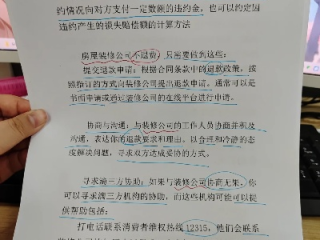 约情况向对方支付一定数额的违约金，也可以约定因
违约产生的损失赔偿额的计算方法
房屋装修公司不退费，只需要做到这些：
提交退款申请：根据合同条款中的退款政策，按
照给订的方式向装修公司提出退款申请，通常可以是
书面申请或通过装修公司的在线平台进行申请。
协商与沟通：与装修公司的工作人员协商并积及
沟通，表达你的退款要求和理由。以合理和冷静的态
度解决问题，寻求双方达成妥协的方式。
寻求满三方协助：如果与装修公司协商无果，你
可以寻求满三方机构的协助，而这些机构可能可以提
供帮助包括：
打电话联系消费者维权热线 12315，他们会联系